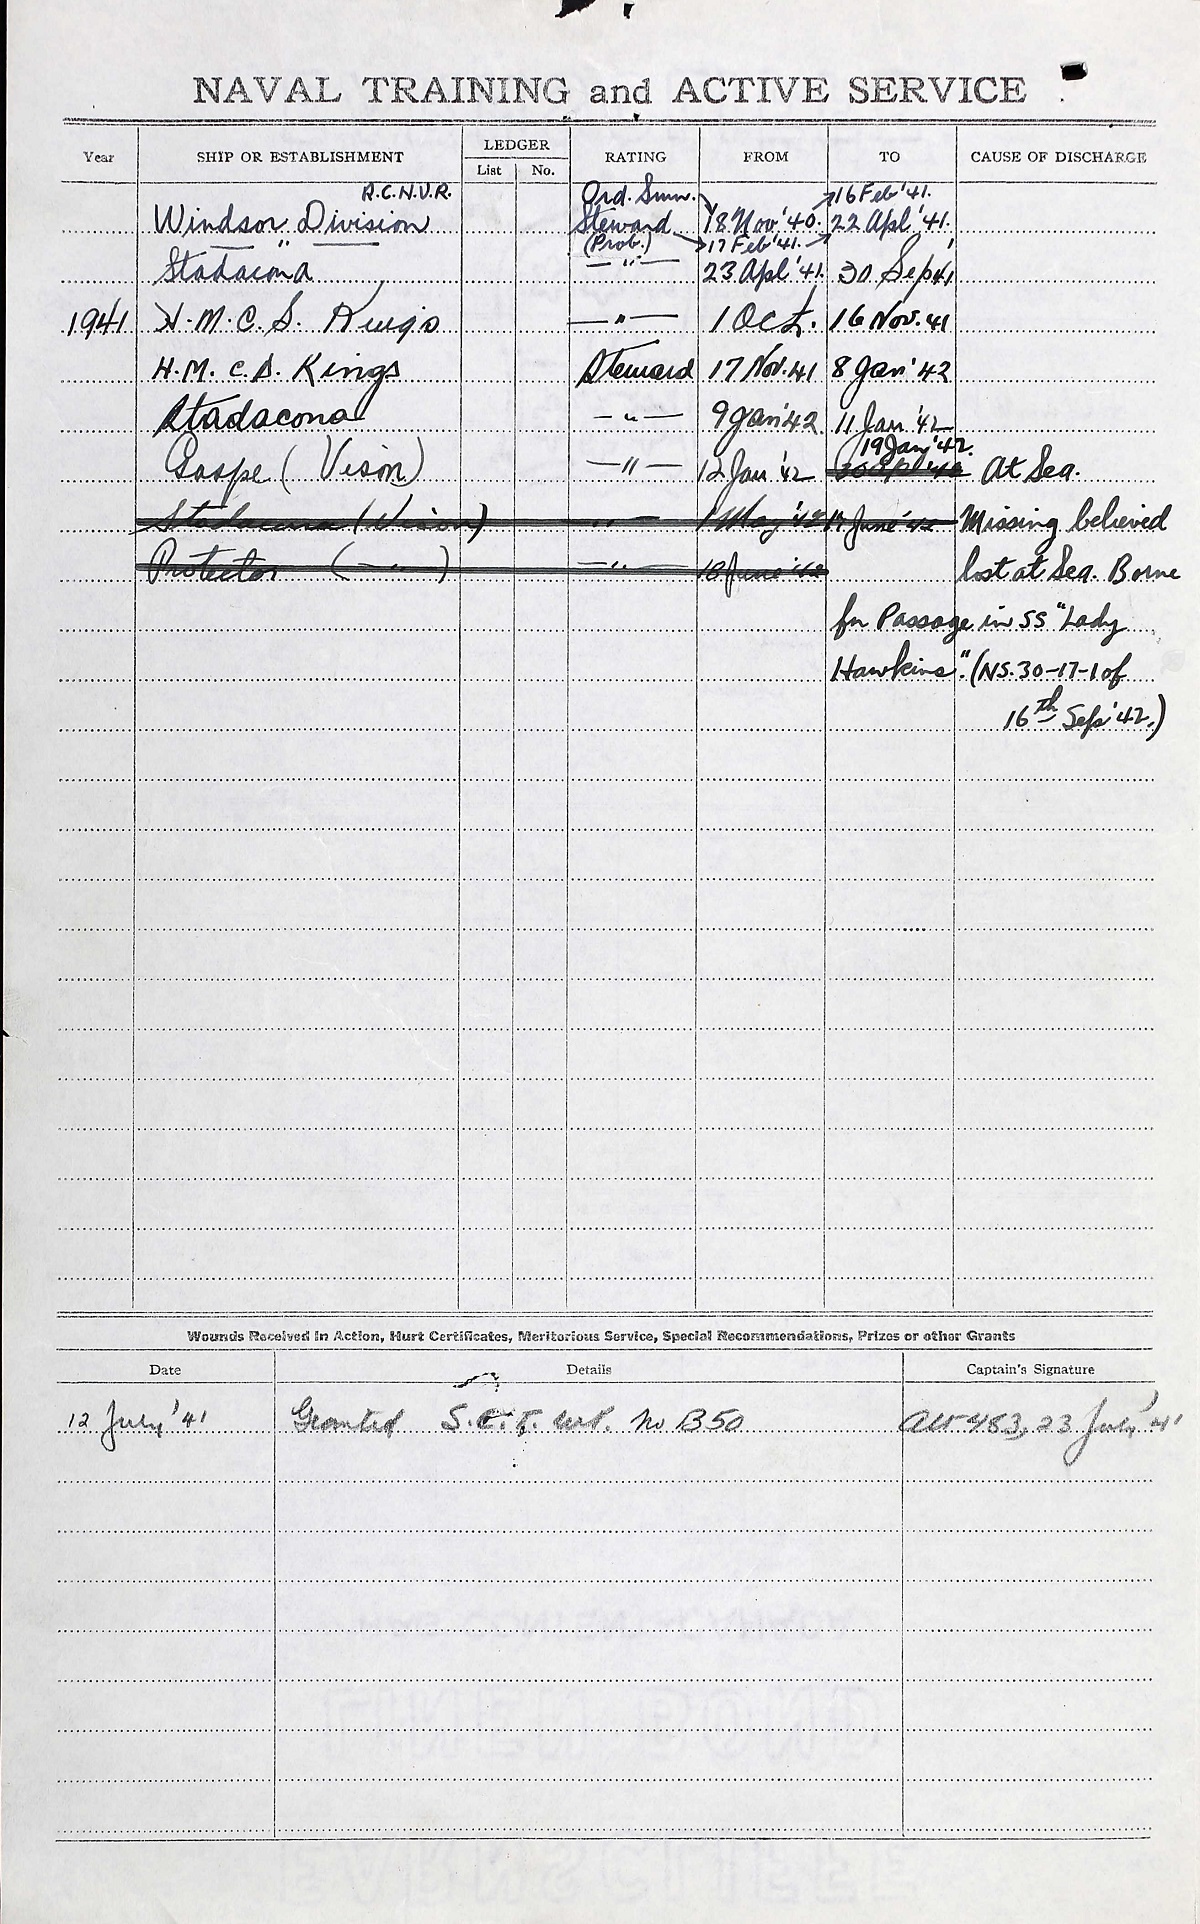 NAVAL TRAINING and ACTIVE SERVICE
Year SHIP OR ESTABLISHMENT LEDGER List No. RATING FROM TO CAUSE OF DISCHARGE
R.C.N.V.R. Ord. Smn. 16 Feb '41.
Windsor Division Steward 18 Nov '40. 22 Apl '41.
" (Prob.) 17 Feb '41.
Stadacona —"— 23 Apl '41. 30 Sep 41
1941 H.M.C.S. Kings —"— 1 Oct. 16 Nov. 41
H.M.C.S. Kings Steward 17 Nov. 41 8 Jan '42
Stadacona —"— 9 Jan '42. 11 Jan '42
19 Jan '42.
Gaspe (Vison) —"— 12 Jan '42 30 Apl '42 At Sea.
Stadacona (Vison) —"— 1 May '42 17 June '42 Missing believed
Protector (—"—) —"— 18 June '42 lost at Sea. Borne
for Passage in SS "Lady
Hawkins". (NS. 30-17-1 of
16th Sep '42.)
Wounds Received in Action, Hurt Certificates, Meritorious Service, Special Recommendations, Prizes or other Grants
Date Details Captain's Signature
12 July '41 Granted No B50 483, 23 July '41